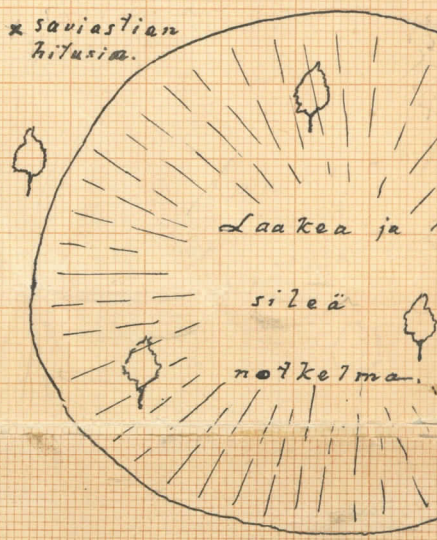 x saviastian
hitusia.
Laakea ja
sileä
notkelma.